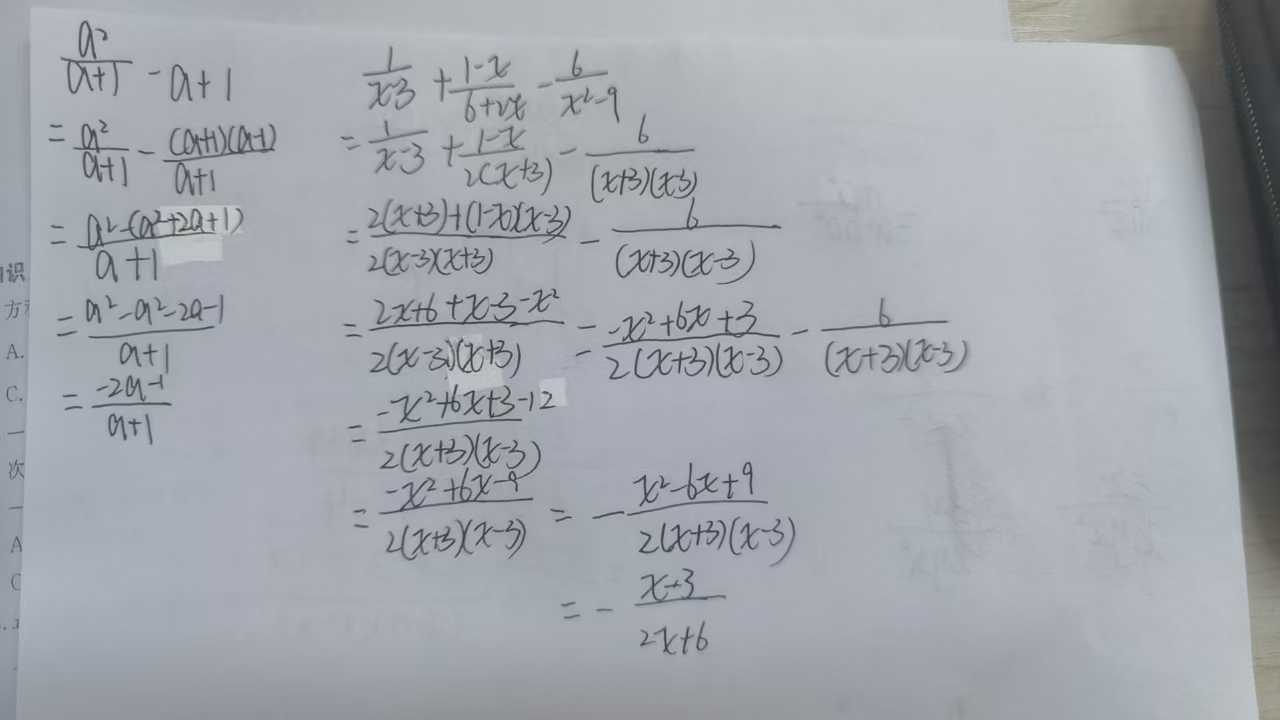 a²/(a+1) - a+1
= a²/(a+1) - (a+1)(a-1)/(a+1)
= (a²-(a²+2a+1))/(a+1)
= (a²-a²-2a-1)/(a+1)
= (-2a-1)/(a+1)
1/(x-3) + (1-x)/(6+2x) - 6/(x²-9)
= 1/(x-3) + (1-x)/(2(x+3)) - 6/((x+3)(x-3))
= (2(x+3)+(1-x)(x-3))/(2(x-3)(x+3)) - 6/((x+3)(x-3))
= (2x+6+x-3-x²)/(2(x-3)(x+3)) = (-x²+6x+3)/(2(x+3)(x-3)) - 6/((x+3)(x-3))
= (-x²+6x+3-12)/(2(x+3)(x-3))
= (-x²+6x-9)/(2(x+3)(x-3)) = -(x²-6x+9)/(2(x+3)(x-3))
= -(x-3)/(2x+6)
识
方
A.
C.
一
次
一
A
C